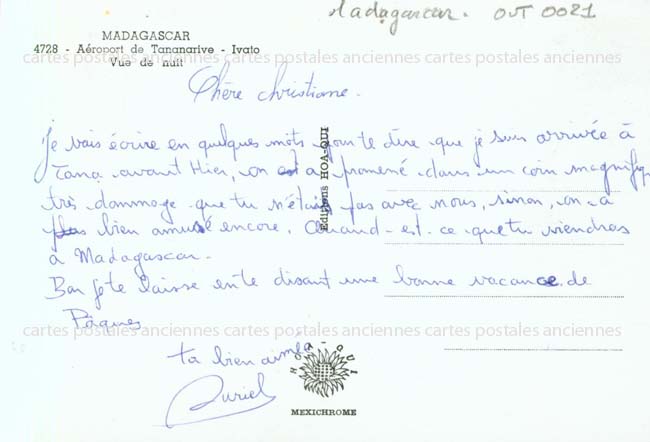 Madagascar. OUT 0021
MADAGASCAR
4728 - Aéroport de Tananarive - Ivato
cartes postales anciennes cartes postales anciennes cartes postales anciennes
Vue de nuit
Chère Christiane.
Je vais écrire en quelques mots pour te dire que je suis arrivée à
Tana avant Hier, on a promené dans un coin magnifiq
très dommage que tu n'étais pas avec nous, sinon, on a
bien amusé encore. Quand-est-ce que tu viendras
à Madagascar.
Bon je te laisse en te disant une bonne vacance de
Pâques
cartes postales anciennes cartes postales anciennes cartes postales anciennes
ta bien aimée
Editions HOA-QUI
HOA-QUI
MEXICHROME